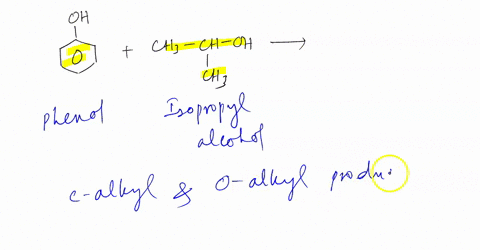 OH
O + CH3-CH-OH →
CH3
phenol Isopropyl
alcohol
c-alkyl & O-alkyl produ